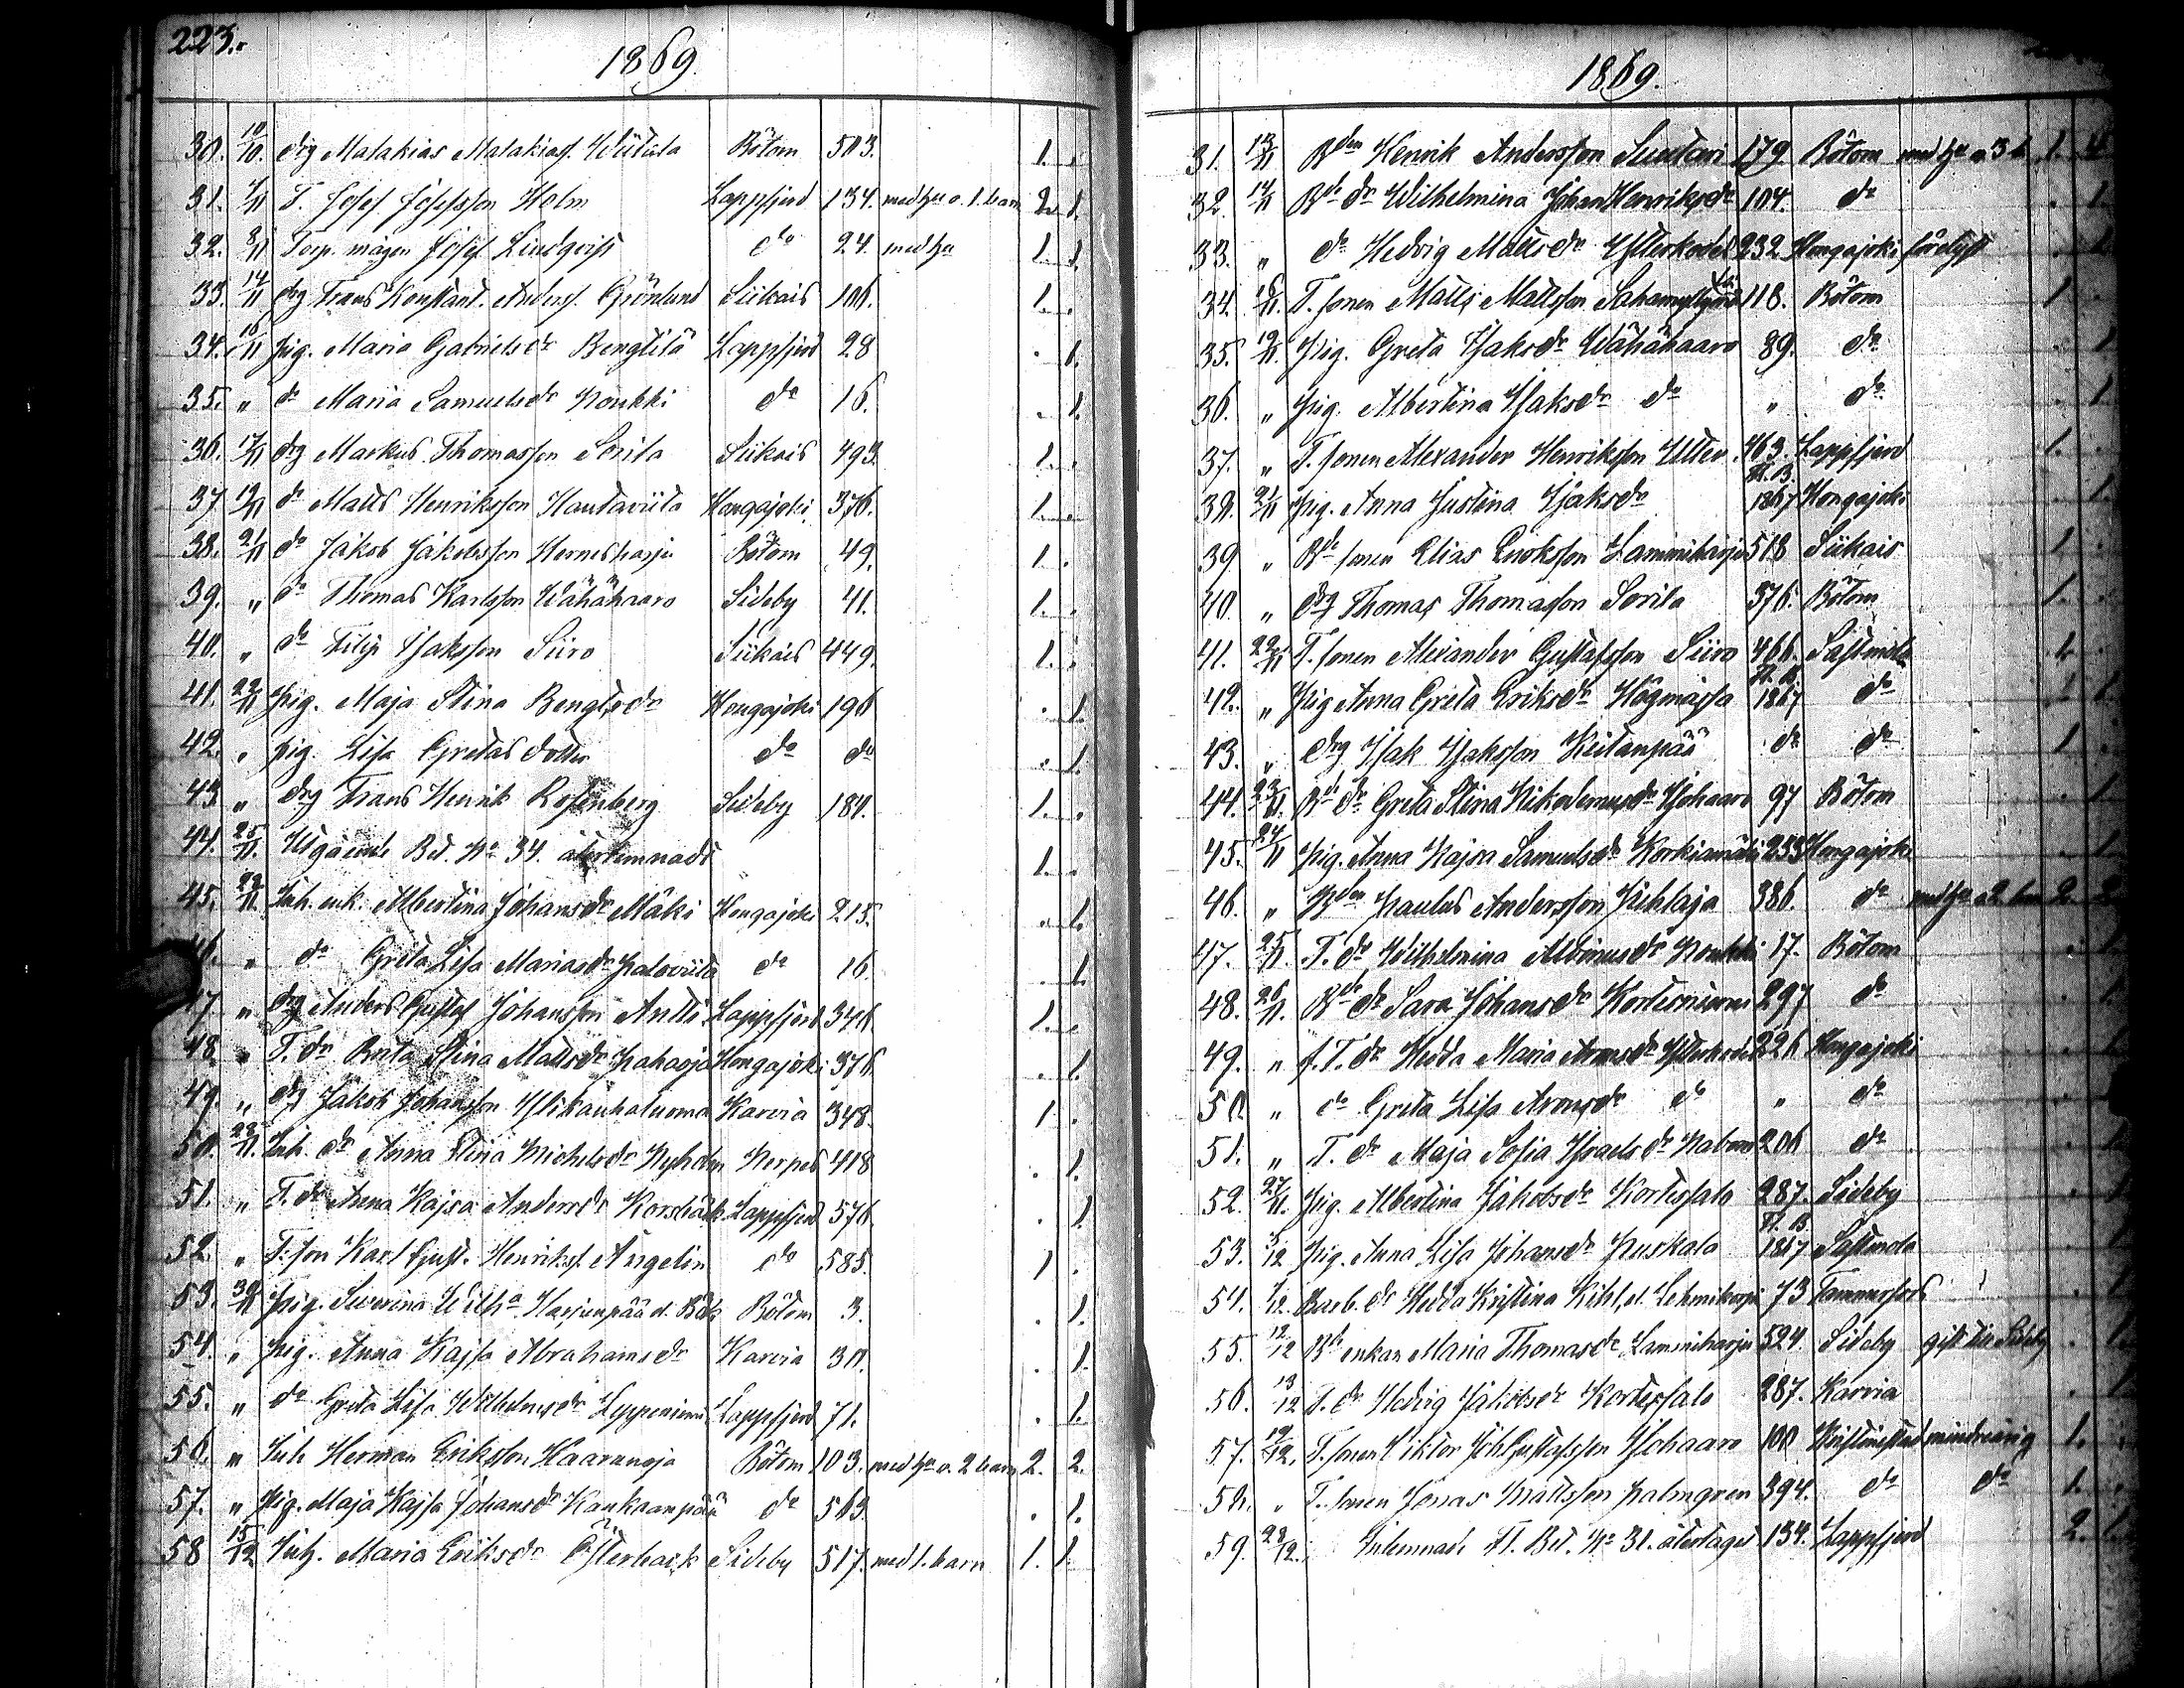 223.
1869.
30. 10/10. drg Malakias Malakiass. Wiitala Bötom 503. 1. .
31. 4/11 T. Josef Josefsson Holm Lappfjerd 134. med hu o. 1. barn 2. 1.
32. 8/11 Torp. mågen Josef Lindqvist do 24. med hu 1. 1.
33. 14/11 drg Frans Konstant. Anderss. Grönlund Siikais 106. 1. .
34. 16/11 pig. Maria Gabrielsdr Bengtilä Lappfjerd 28 . 1.
35. " do Maria Samuelsdr Koukki do 16. . 1.
36. 17/11 drg Markus Thomasson Sorila Siikais 493. 1. .
37. 19/11 do Matts Henriksson Hautaviita Hongajoki 376. 1. .
38. 21/11 do Jakob Jakobsson Hernesharju Bötom 49. 1. .
39. " do Thomas Karlsson Wähähaaro Sideby 41. 1. .
40. " do Filip Isaksson Siiro Siikais 449. 1. .
41. 22/11 pig. Maja Stina Bengtsdr Hongajoki 196 . 1.
42. " pig. Lisa Gretas dotter do do . 1.
43 " drg Frans Henrik Rosenberg Sideby 181. 1. .
44. 25/11. Utgående Bet. No 34. återlemnadt 1. .
45. 22/11. Inh. enk. Albertina Johansdr Mäki Hongajoki 215. . 1.
46. " do Greta Lisa Mariasdr Paloviita do 16. . 1.
47. " drg Anders Gustaf Johansson Antti Lappfjerd 346. 1. .
48. " T. dr Brita Stina Mattsdr Paharja Hongajoki 376. . 1.
49. " drg Jakob Johansson Ylikauhaluoma Karvia 348. 1 .
50. 28/11. Inh. dr Anna Stina Michelsdr Nyholm Nerpes 418 . 1.
51. " T. dr Anna Kajsa Andersdr Korsbäck Lappfjerd 576. . 1.
52. " T. son Karl Gust. Henrikss. Ångelin do 585. 1 .
53. 30/11 Pig. Severina Wilha Harjunpää Bötom 3. . 1.
54. " Pig. Anna Kajsa Abrahamsdr Karvia 30. . 1.
55. " do Greta Lisa Wilhelmsdr Leppeniemi Lappfjerd 71. . 1.
56. " Inh Herman Eriksson Haaranoja Bötom 103. med hu o. 2 barn 2. 2.
57. " Pig. Maja Kajsa Johansdr Kankaanpää do 563. . 1.
58 15/12 Inh. Maria Eriksdr Österback Sideby 517. med 1. barn 1. 1.
1869.
31. 13/11 Bden Henrik Andersson Suutari 179. Bötom med hu o. 3 b. 1. 4
32. 14/11 Bde dr Wilhelmina Johan Henriksdr 104. do . 1
33. " do Hedvig Mattsdr Ylterkodet 232. Hongajoki förelyst . 1
34. 16/11. T. sonen Matts Mattsson 118. Bötom 1 .
35. 19/11. Pig. Greta Isaksdr Wähähaaro 89. do . 1
36. " Pig. Albertina Isaksdr do " do . 1
37. " T. sonen Alexander Henriksson Utter 463. Lappfjerd 1. .
39. 21/11 Pig. Anna Justina Isaksdr Fl. B. 1867 Hongajoki . 1.
39. " Bde sonen Elias Enoksson Lammiharju 518 Siikais 1. .
40. " drg Thomas Thomasson Sorila 376. Bötom 1. .
41. 22/11 T. sonen Alexander Gustafsson Siiro 466. Sastmola 1. .
42. " Pig Anna Greta Eriksdr Högmossa Fl. B. 1867 do . 1
43. " drg Isak Isaksson Keitanpää do do 1 .
44. 23/11. Bde dr Greta Stina Nikodemusdr Isohaaro 97 Bötom . 1
45. 24/11 Pig. Anna Kajsa Samuelsdr Korkiamäki 253 Hongajoki . 1
46. " Bden Paulus Andersson Pihlaja 386. do med hu o 2 barn 2. 2
47. 25/11. T. dr Wilhelmina Albinusdr Koukki 17. Bötom . 1
48. 26/11. Bde dr Sara Johansdr Korteniemi 297 do . 1
49. " f. T. dr Hedda Maria Aronsdr Ylterkodet 226 Hongajoki
50. " do Greta Lisa Aronsdr do " do
51. " T. dr Maja Sofia Israelsdr 206 do
52. 27/11. Pig. Albertina Jakobsdr Kortessalo 287. Sideby . 1
53. 5/12 Pig. Anna Lisa Johansdr Puskala Fl. B. 1867 Sastmola . 1
54. 7/12. Barb. dr Hedda Kristina Kihl, 73 Tammerfors
55. 12/12 Bde enkan Maria Thomasdr Lammiharju 524. Sideby gift till Sideby . 1
56. 13/12 T. dr Hedvig Jakobsdr Kortessalo 287. Karvia . 1
57. 19/12. T. sonen Viktor Joh Gustafsson Isohaaro 100 Kristinestad minderårig 1. .
58. " T. sonen Jonas Mattsson Palmgren 394. do do 1. .
59. 28/12. Inlemnade Fl. Bet. No 31. återtaget 134. Lappfjerd 2. 1.